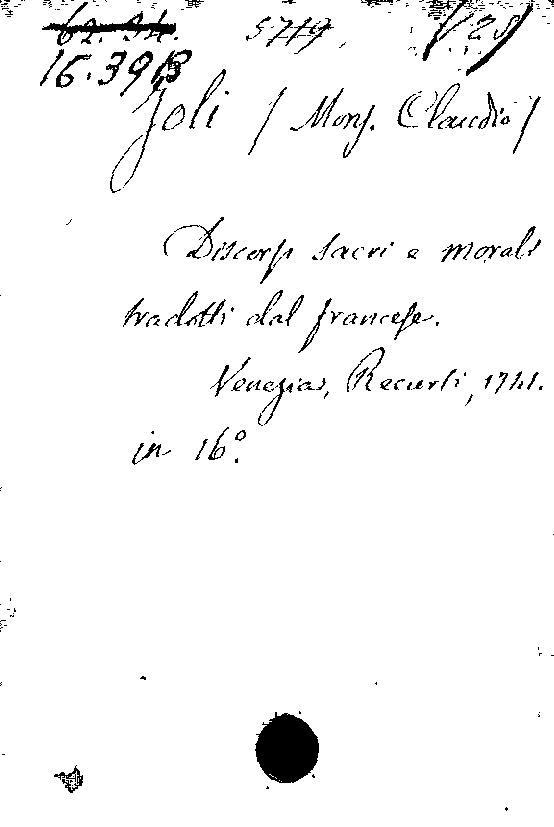 62. 34. 5719.
16.39B
Joli / Mons. Claudio /
Discorsi sacri e morali
tradotti dal francese.
Venezia, Recurti, 1741.
in 16º.